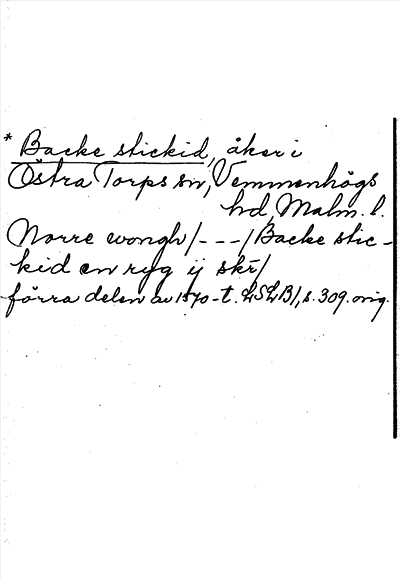 * Backe stickid, åker i
Östra Torps sn, Vemmenhögs
hd, Malm. l.
Norre wongh/---/Backe stic-
kid en ryg ij skr/
förra delen av 1570-t. LSLB1, s. 309. orig.